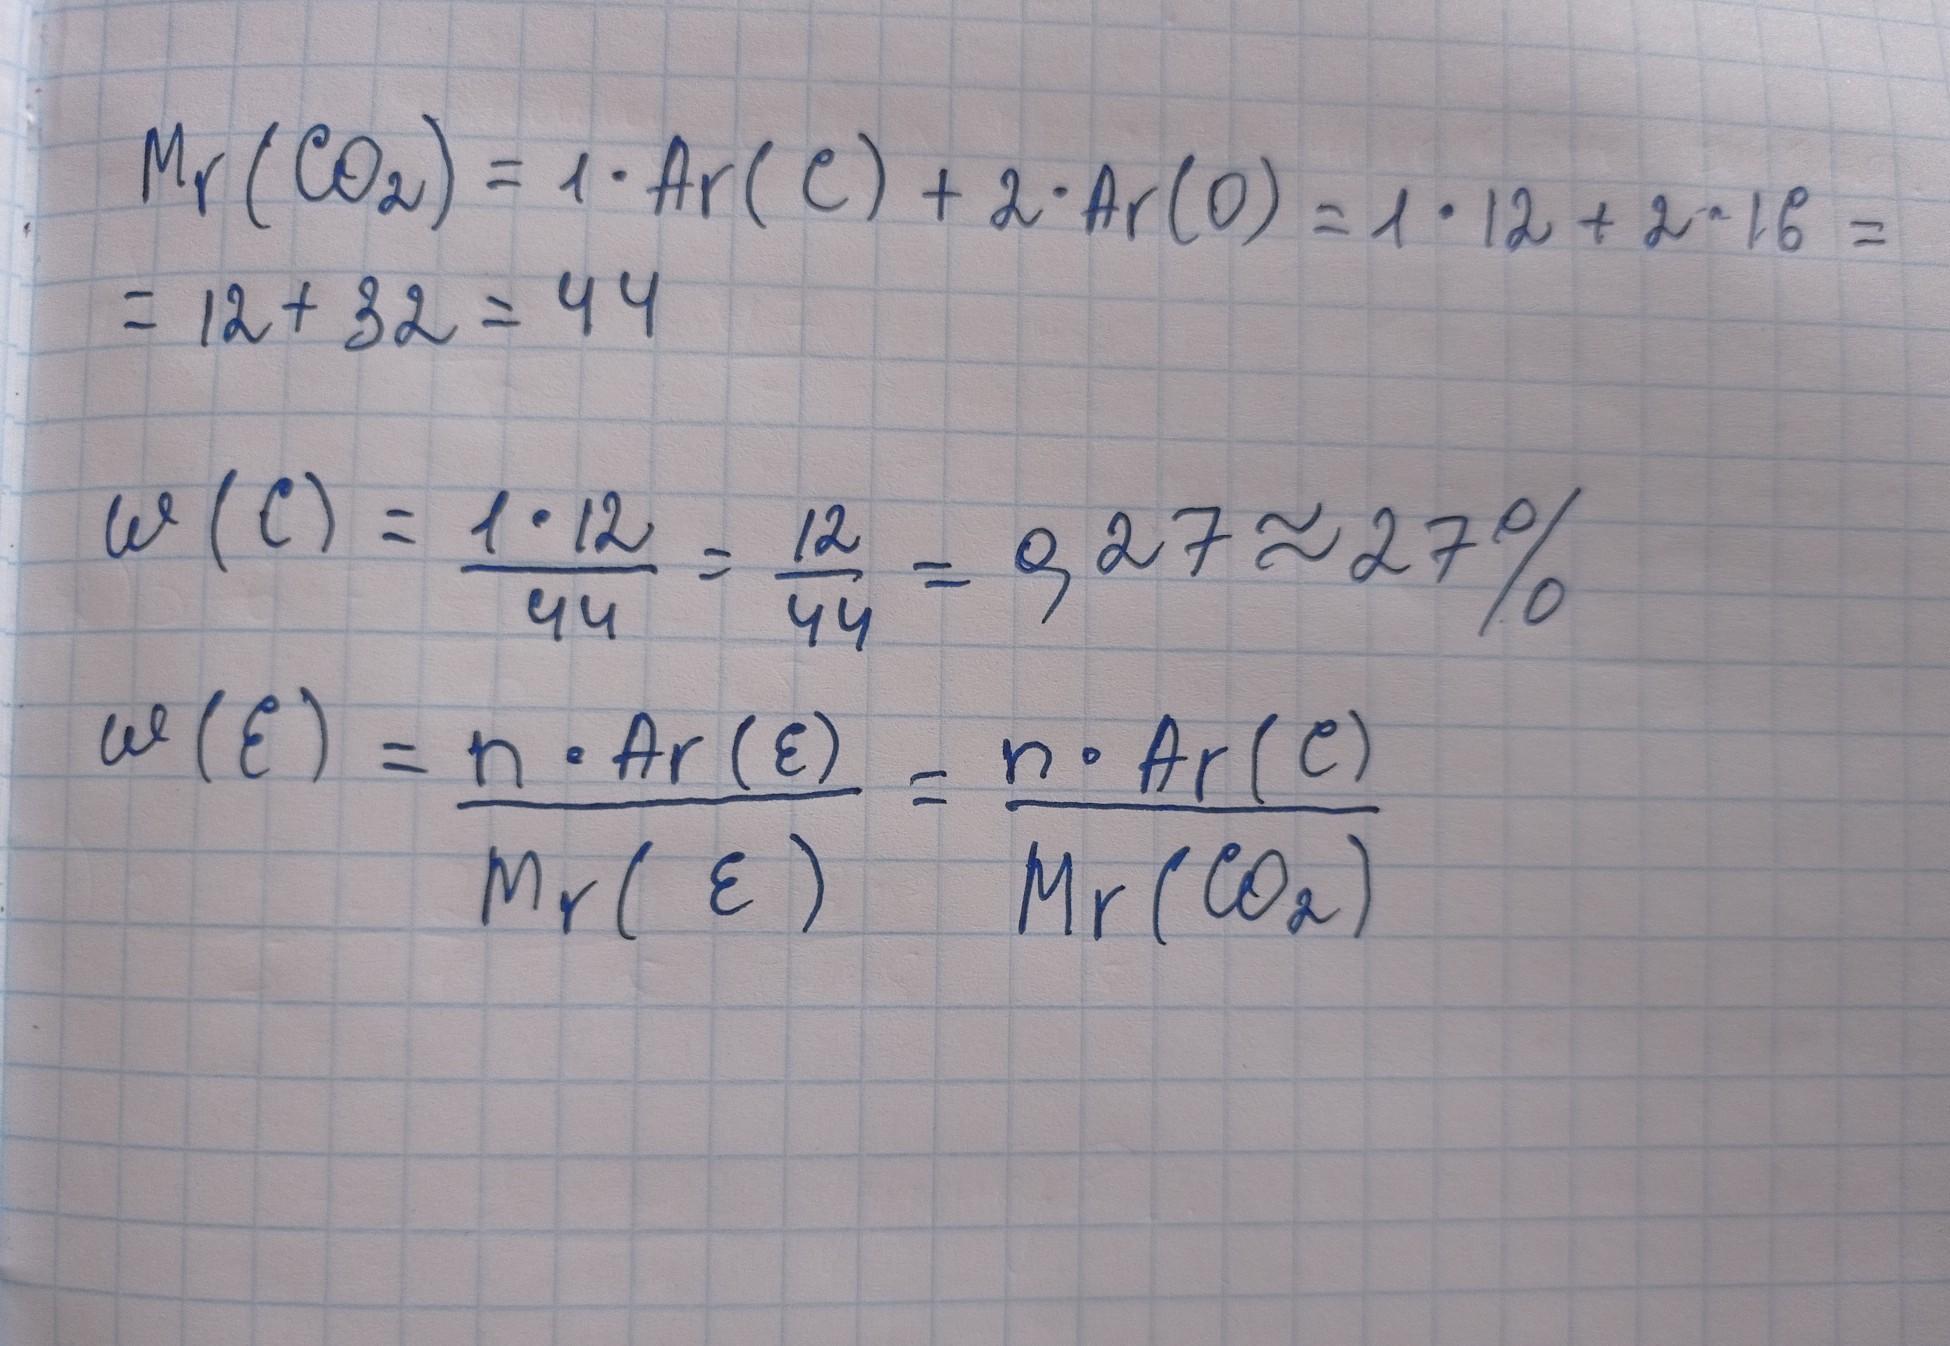 Mr(CO₂) = 1·Ar(C) + 2·Ar(O) = 1·12 + 2·16 =
= 12 + 32 = 44
w(C) = 1·12/44 = 12/44 = 0,27 ≈ 27%
w(Ɛ) = n·Ar(Ɛ)/Mr(Ɛ) = n·Ar(C)/Mr(CO₂)